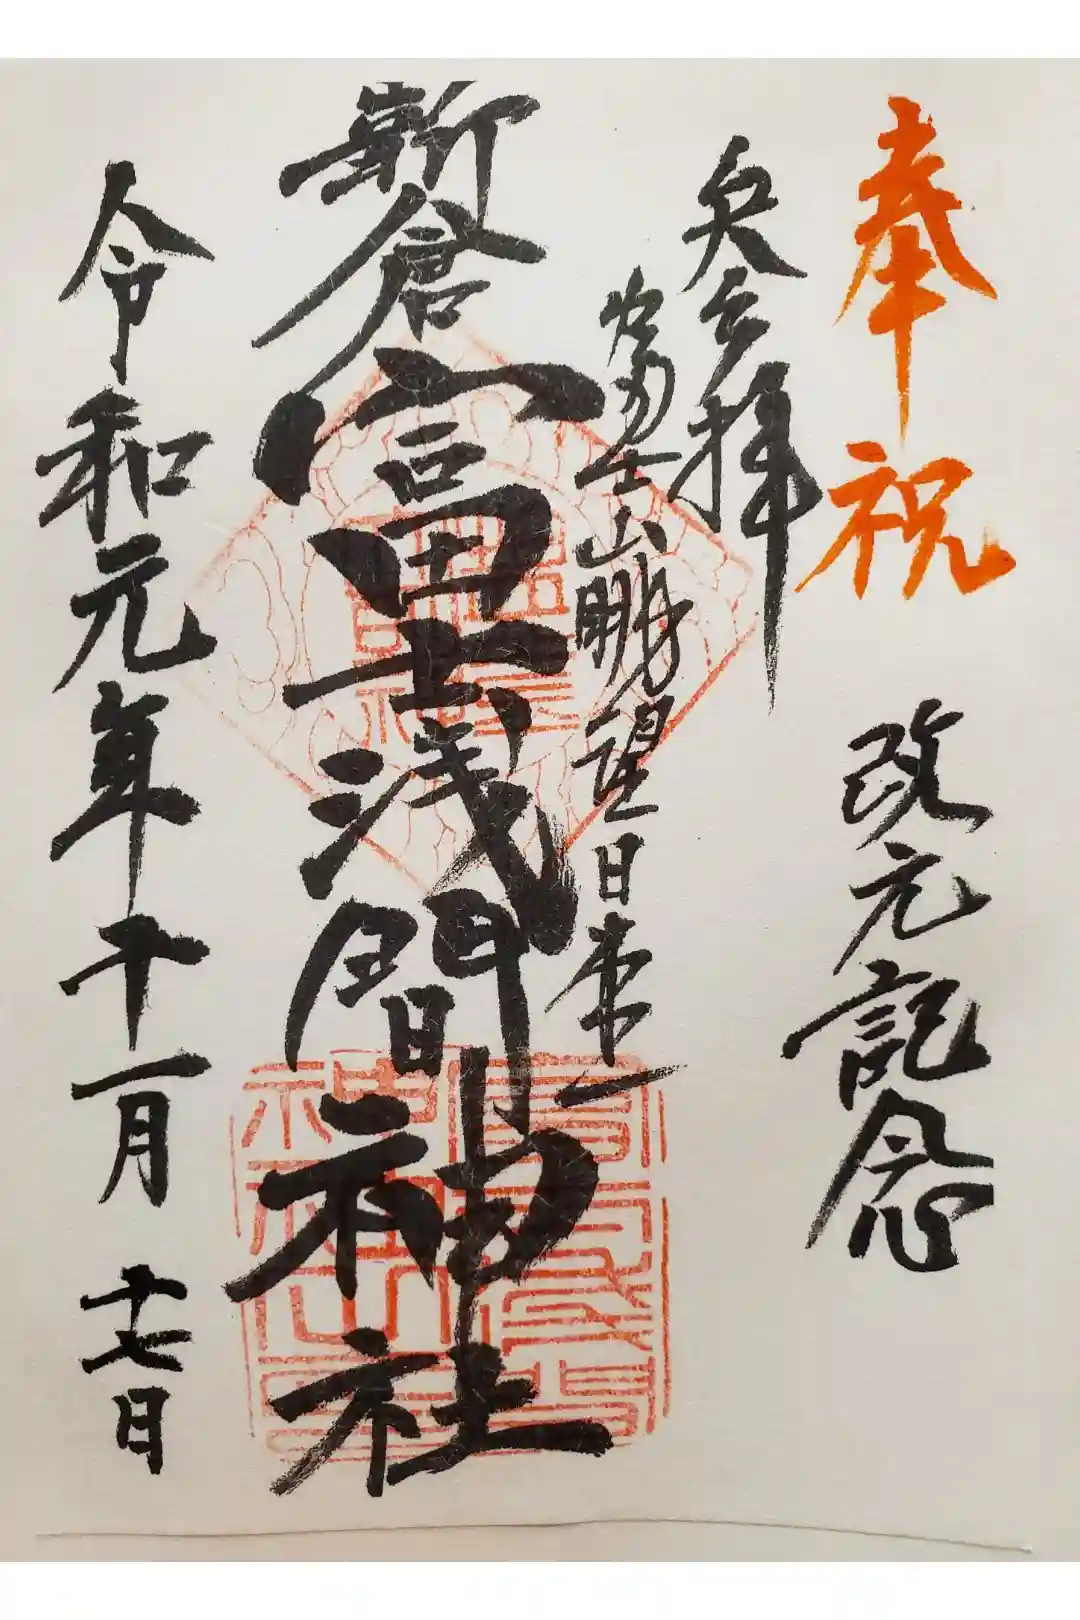 奉祝
改元記念
奉拝
富士山眺望日本一
新倉富士浅間神社
令和元年十一月十七日